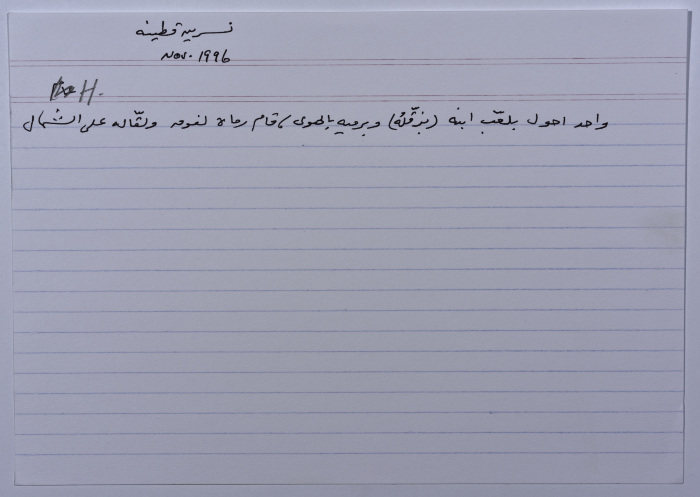 نسرين قطينه
Nov. 1996
H.
واحد احول بلعّب ابنه (بزقّله) وبرميه بالهوى، قام رماه لفوق ولقّاله على الشمال